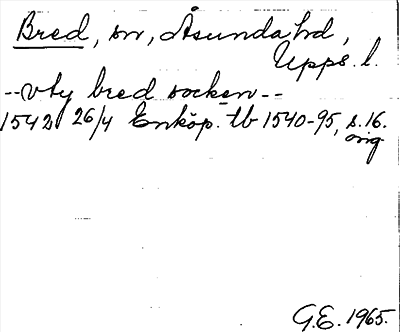 Bred, sn, Åsunda hd,
Upps. l.
--vty bred socken--
1542 26/4 Enköp. tb 1540-95, s. 16.
orig
G.E. 1965.